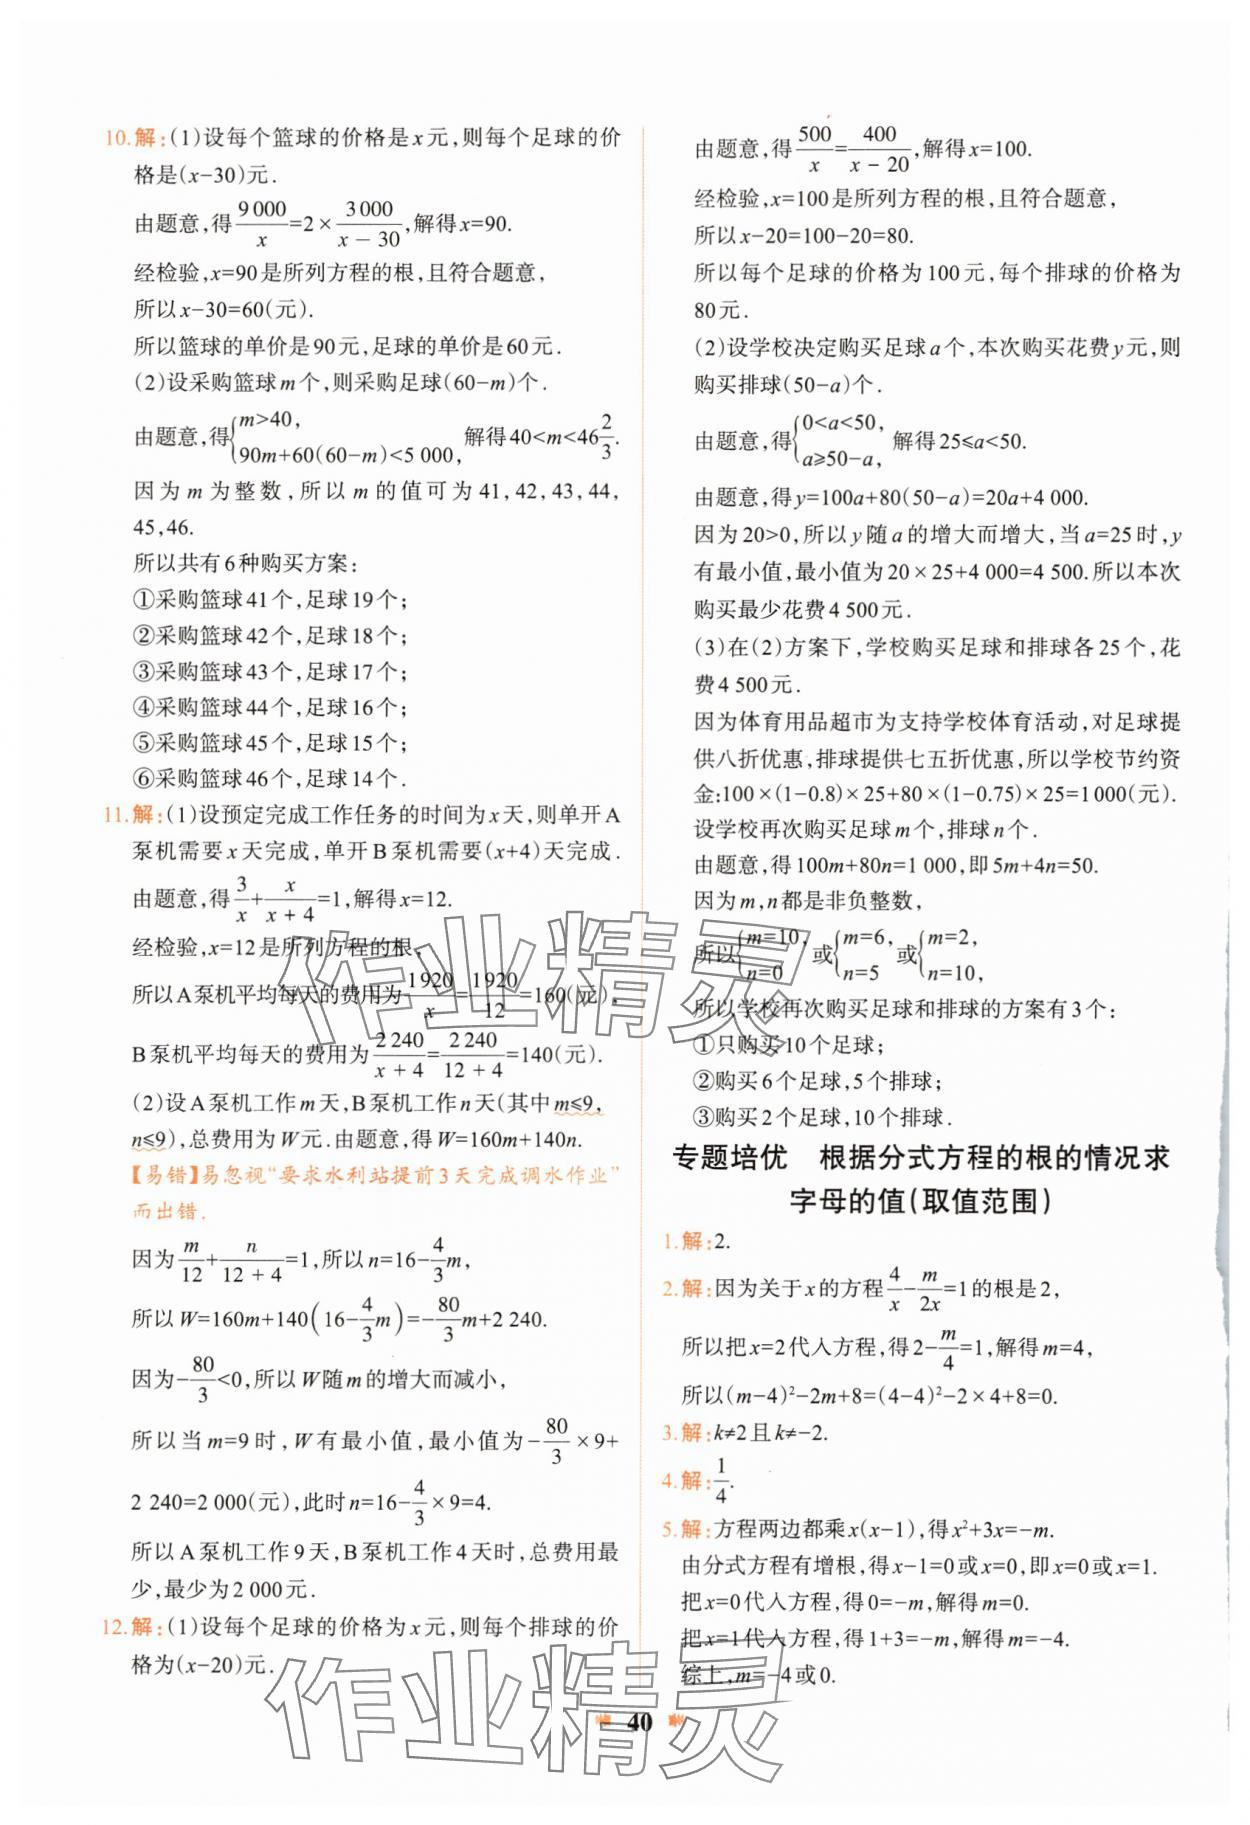 10.解:(1)设每个篮球的价格是x元,则每个足球的价
格是(x-30)元.
由题意,得9 000/x=2×3 000/(x-30),解得x=90.
经检验,x=90是所列方程的根,且符合题意,
所以x-30=60(元).
所以篮球的单价是90元,足球的单价是60元.
(2)设采购篮球m个,则采购足球(60-m)个.
由题意,得{m>40, 90m+60(60-m)<5 000, 解得40<m<46 2/3.
因为m为整数,所以m的值可为41,42,43,44,
45,46.
所以共有6种购买方案:
①采购篮球41个,足球19个;
②采购篮球42个,足球18个;
③采购篮球43个,足球17个;
④采购篮球44个,足球16个;
⑤采购篮球45个,足球15个;
⑥采购篮球46个,足球14个.
11.解:(1)设预定完成工作任务的时间为x天,则单开A
泵机需要x天完成,单开B泵机需要(x+4)天完成.
由题意,得3/x+x/(x+4)=1,解得x=12.
经检验,x=12是所列方程的根.
所以A泵机平均每天的费用为1920/x=1920/12=160(元),
B泵机平均每天的费用为2 240/(x+4)=2 240/(12+4)=140(元).
(2)设A泵机工作m天,B泵机工作n天(其中m≤9,
n≤9),总费用为W元.由题意,得W=160m+140n.
【易错】易忽视“要求水利站提前3天完成调水作业”
而出错.
因为m/12+n/(12+4)=1,所以n=16-4/3m,
所以W=160m+140(16-4/3m)=-80/3m+2 240.
因为-80/3<0,所以W随m的增大而减小,
所以当m=9时,W有最小值,最小值为-80/3×9+
2 240=2 000(元),此时n=16-4/3×9=4.
所以A泵机工作9天,B泵机工作4天时,总费用最
少,最少为2 000元.
12.解:(1)设每个足球的价格为x元,则每个排球的价
格为(x-20)元.
由题意,得500/x=400/(x-20),解得x=100.
经检验,x=100是所列方程的根,且符合题意,
所以x-20=100-20=80.
所以每个足球的价格为100元,每个排球的价格为
80元.
(2)设学校决定购买足球a个,本次购买花费y元,则
购买排球(50-a)个.
由题意,得{0<a<50, a≥50-a, 解得25≤a<50.
由题意,得y=100a+80(50-a)=20a+4 000.
因为20>0,所以y随a的增大而增大,当a=25时,y
有最小值,最小值为20×25+4 000=4 500.所以本次
购买最少花费4 500元.
(3)在(2)方案下,学校购买足球和排球各25个,花
费4 500元.
因为体育用品超市为支持学校体育活动,对足球提
供八折优惠,排球提供七五折优惠,所以学校节约资
金:100×(1-0.8)×25+80×(1-0.75)×25=1 000(元).
设学校再次购买足球m个,排球n个.
由题意,得100m+80n=1 000,即5m+4n=50.
因为m,n都是非负整数,
所以{m=10, n=0 或{m=6, n=5 或{m=2, n=10,
所以学校再次购买足球和排球的方案有3个:
①只购买10个足球;
②购买6个足球,5个排球;
③购买2个足球,10个排球.
专题培优 根据分式方程的根的情况求
字母的值(取值范围)
1.解:2.
2.解:因为关于x的方程4/x-m/2x=1的根是2,
所以把x=2代入方程,得2-m/4=1,解得m=4,
所以(m-4)²-2m+8=(4-4)²-2×4+8=0.
3.解:k≠2且k≠-2.
4.解:1/4.
5.解:方程两边都乘x(x-1),得x²+3x=-m.
由分式方程有增根,得x-1=0或x=0,即x=0或x=1.
把x=0代入方程,得0=-m,解得m=0.
把x=1代入方程,得1+3=-m,解得m=-4.
综上,m=-4或0.
40
作业精灵
作业精灵